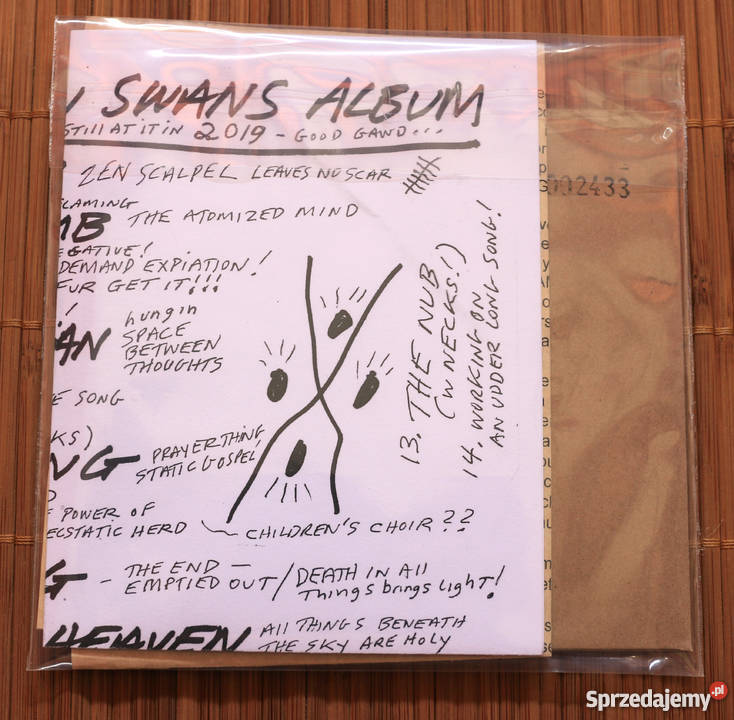 SWANS ALBUM
STILL AT IT IN 2019 - GOOD GAWD...
ZEN SCALPEL LEAVES NO SCAR
THE ATOMIZED MIND
DEMAND EXPIATION!
FUR GET IT!!!
hung in
SPACE
BETWEEN
THOUGHTS
E SONG
KS)
NG PRAYER THING,
STATIC GOSPEL
POWER OF
ECSTATIC HERD — CHILDREN'S CHOIR ??
G - THE END —
EMPTIED OUT / DEATH IN All
Things brings light!
HEAVEN All THINGS BENEATH
THE SKY ARE HOLY
13. THE NUB
(W NECKS!)
14. WORKING ON
AN UDDER LONG SONG!
002433
Sprzedajemy.pl